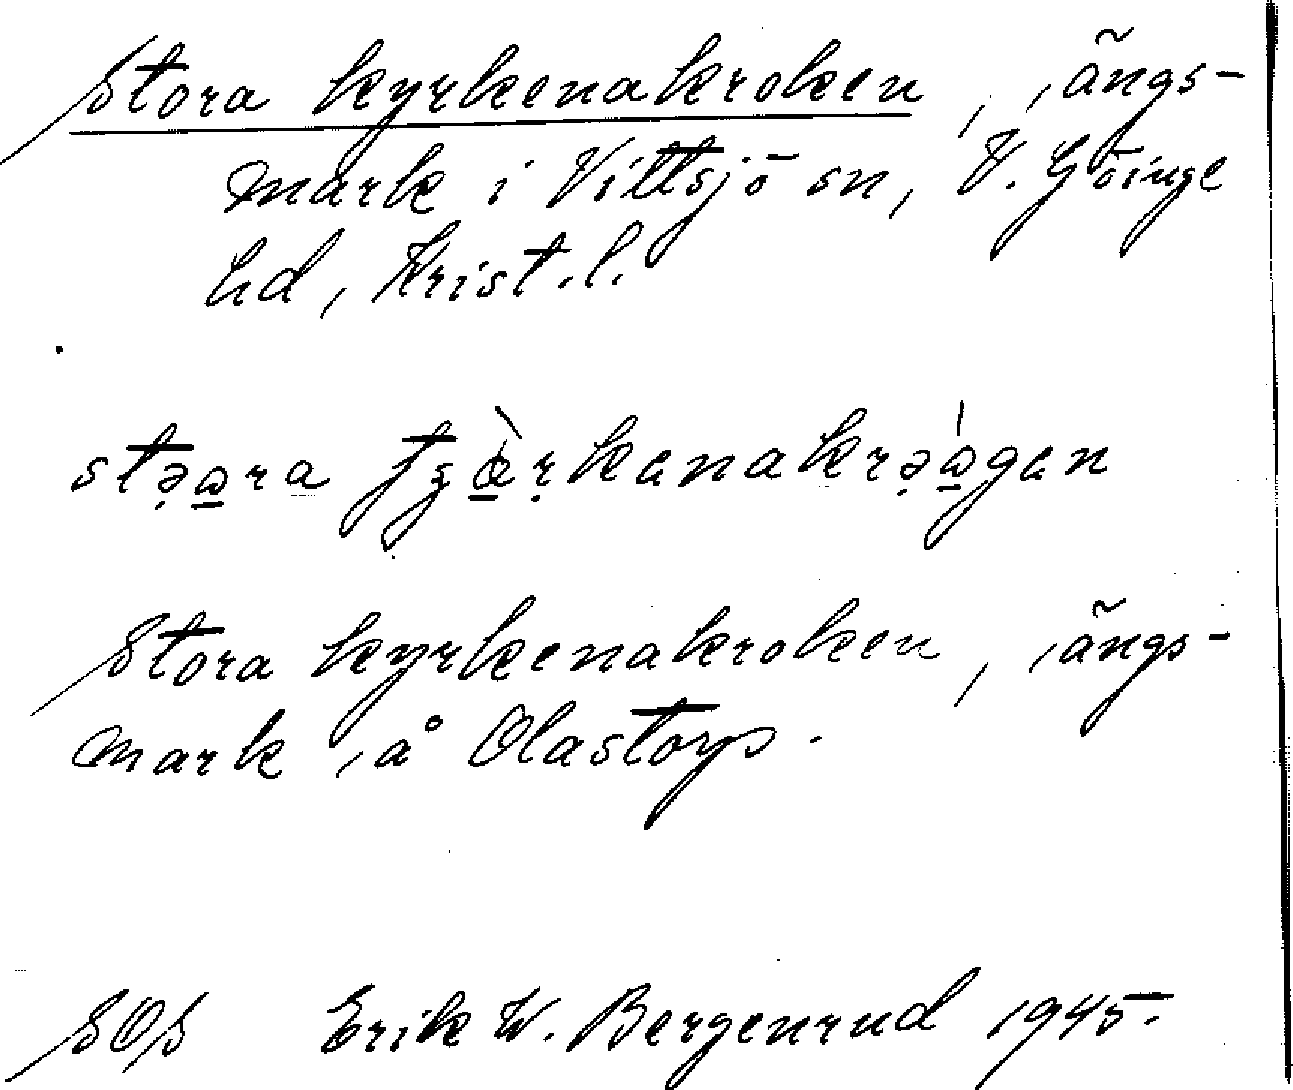 Stora kyrkenakroken, ängs-
mark i Vittsjö sn, V. Göinge
hd, Krist. l.
Stora kyrkenakroken, ängs-
mark å Olastorp.
SOS Erik W. Bergenrud 1945.